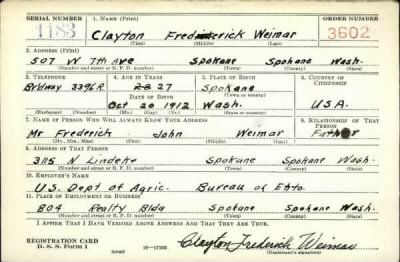 SERIAL NUMBER 1. NAME (Print) ORDER NUMBER
1183 Clayton Frederick Weimar 3602
(First) (Middle) (Last)
2. ADDRESS (Print)
507 W 7th Ave Spokane Spokane Wash.
(Number and street or R. F. D. number) (Town) (County) (State)
3. TELEPHONE 4. AGE IN YEARS 5. PLACE OF BIRTH 6. COUNTRY OF CITIZENSHIP
Brdway 3396R 28 27 Spokane
DATE OF BIRTH (Town or county)
Oct 20 1912 Wash. U.S.A.
(Exchange) (Number) (Mo.) (Day) (Yr.) (State or country)
7. NAME OF PERSON WHO WILL ALWAYS KNOW YOUR ADDRESS 8. RELATIONSHIP OF THAT PERSON
Mr Frederick John Weimar Father
(Mr., Mrs., Miss) (First) (Middle) (Last)
9. ADDRESS OF THAT PERSON
3115 N Lindeke Spokane Spokane Wash.
(Number and street or R. F. D. number) (Town) (County) (State)
10. EMPLOYER'S NAME
U.S. Dept of Agric. Bureau of Ento.
11. PLACE OF EMPLOYMENT OR BUSINESS
804 Realty Bldg Spokane Spokane Wash.
(Number and street or R. F. D. number) (Town) (County) (State)
I AFFIRM THAT I HAVE VERIFIED ABOVE ANSWERS AND THAT THEY ARE TRUE.
REGISTRATION CARD
D. S. S. Form 1 (over) Clayton Frederick Weimar
(Registrant's signature)